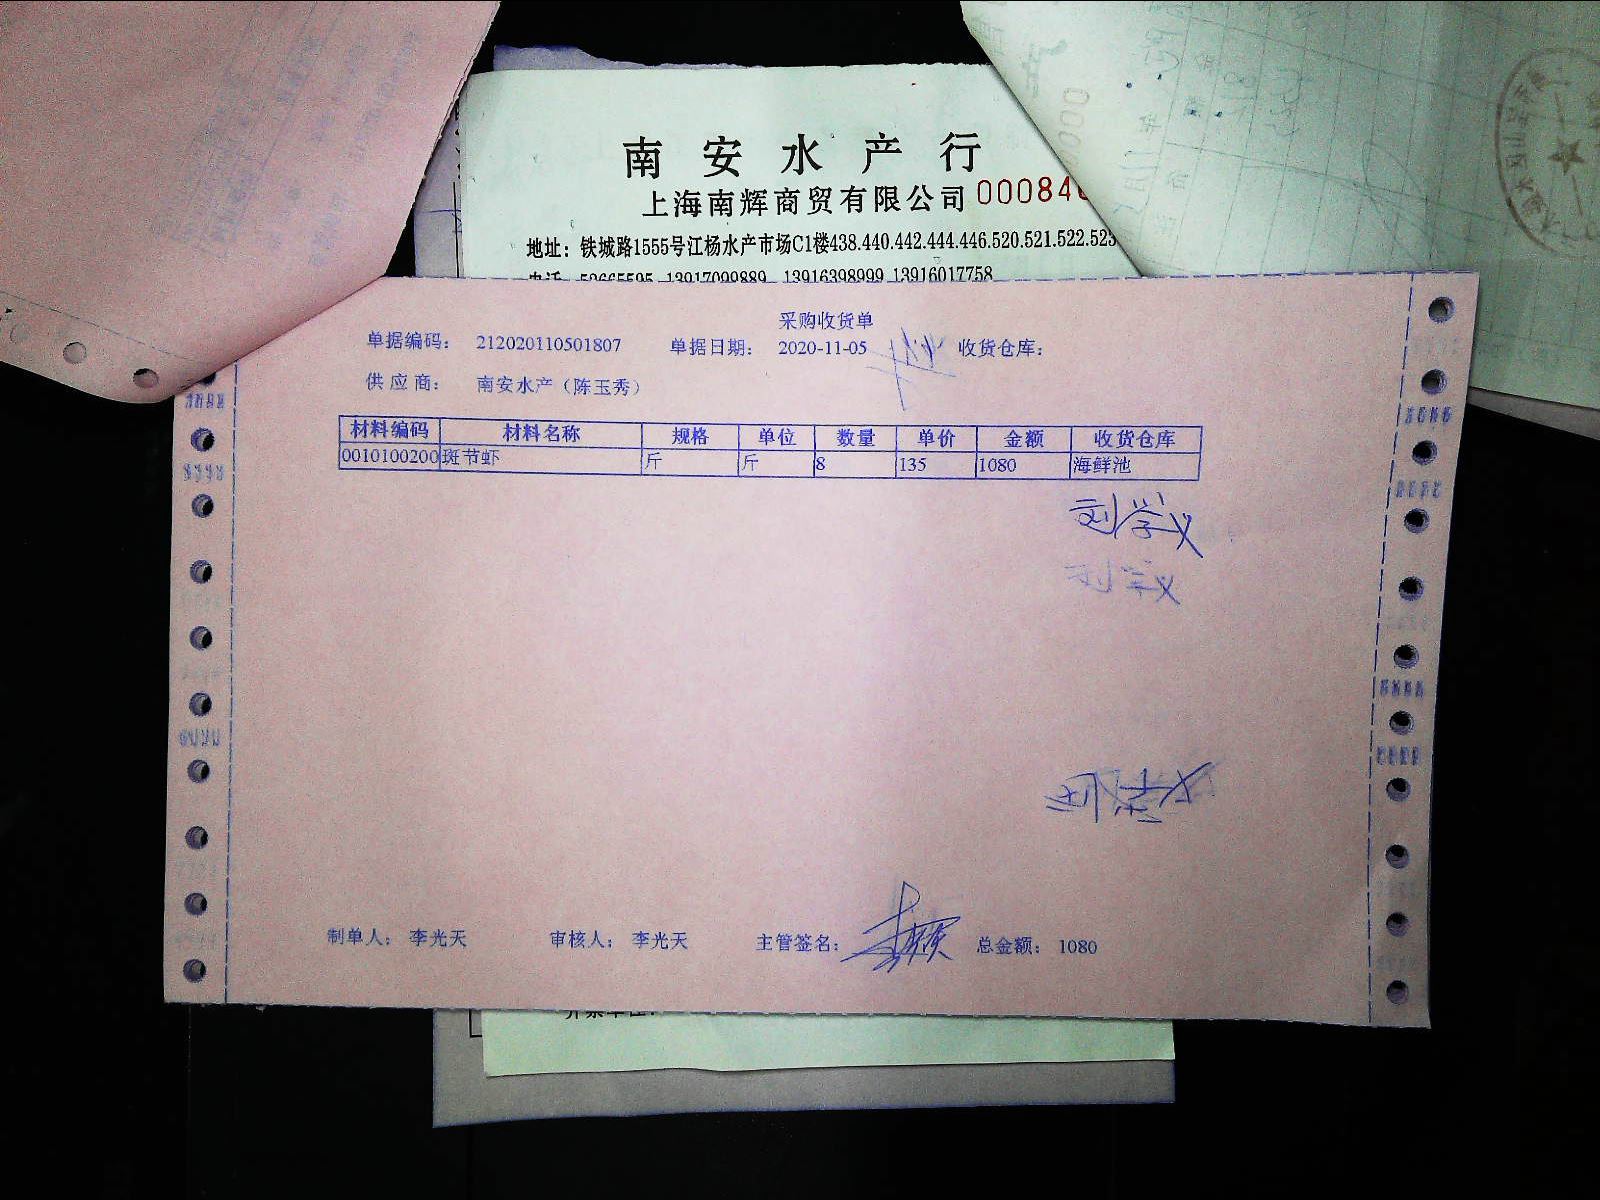 南安水产行
上海南辉商贸有限公司 00084
地址：铁城路1555号江杨水产市场C1楼438.440.442.444.446.520.521.522.523
电话：52665595 13917099889 13916398999 13916017758
采购收货单
单据编码： 212020110501807 单据日期： 2020-11-05 收货仓库：
供应商： 南安水产（陈玉秀）
材料编码 材料名称 规格 单位 数量 单价 金额 收货仓库
0010100200 斑节虾 斤 斤 8 135 1080 海鲜池
刘学义
刘学义
刘学义
制单人： 李光天 审核人： 李光天 主管签名： 总金额： 1080
开票单位：